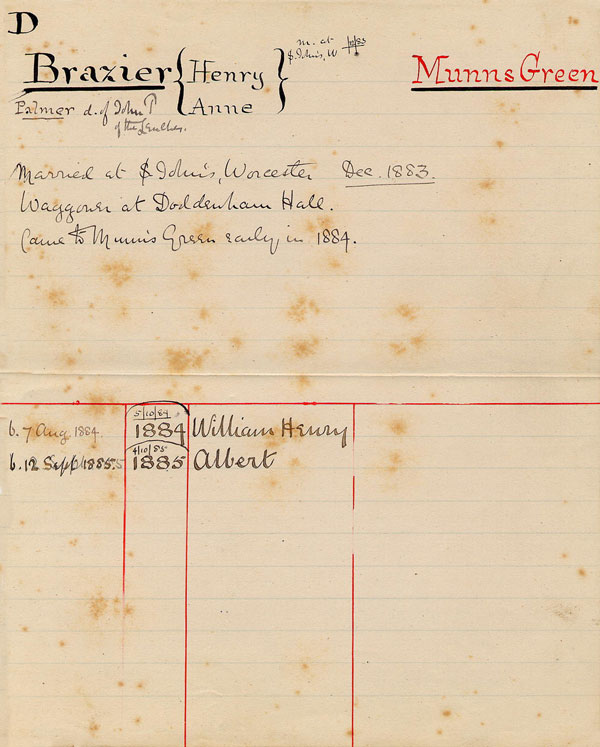 D
m. at
St John's, W
Brazier { Henry } Munns Green
Palmer d. of John P { Anne }
of the
Married at St John's, Worcester Dec. 1883.
Waggoner at Doddenham Hall.
Came to Munn's Green early in 1884.
5/10/84
b. 7 Aug 1884. 1884 William Henry
4/10/85
b. 12 Sept 1885. 1885 Albert